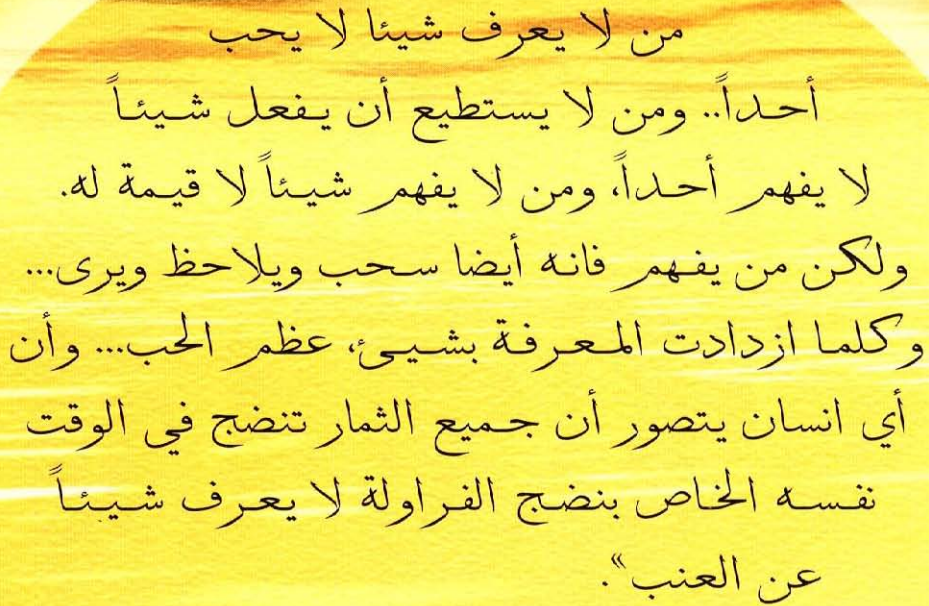 من لا يعرف شيئا لا يحب
أحداً.. ومن لا يستطيع أن يفعل شيئاً
لا يفهم أحداً، ومن لا يفهم شيئاً لا قيمة له.
ولكن من يفهم فانه أيضا سحب ويلاحظ ويرى...
وكلما ازدادت المعرفة بشيئ، عظم الحب... وأن
أي انسان يتصور أن جميع الثمار تنضج في الوقت
نفسه الخاص بنضج الفراولة لا يعرف شيئاً
عن العنب".